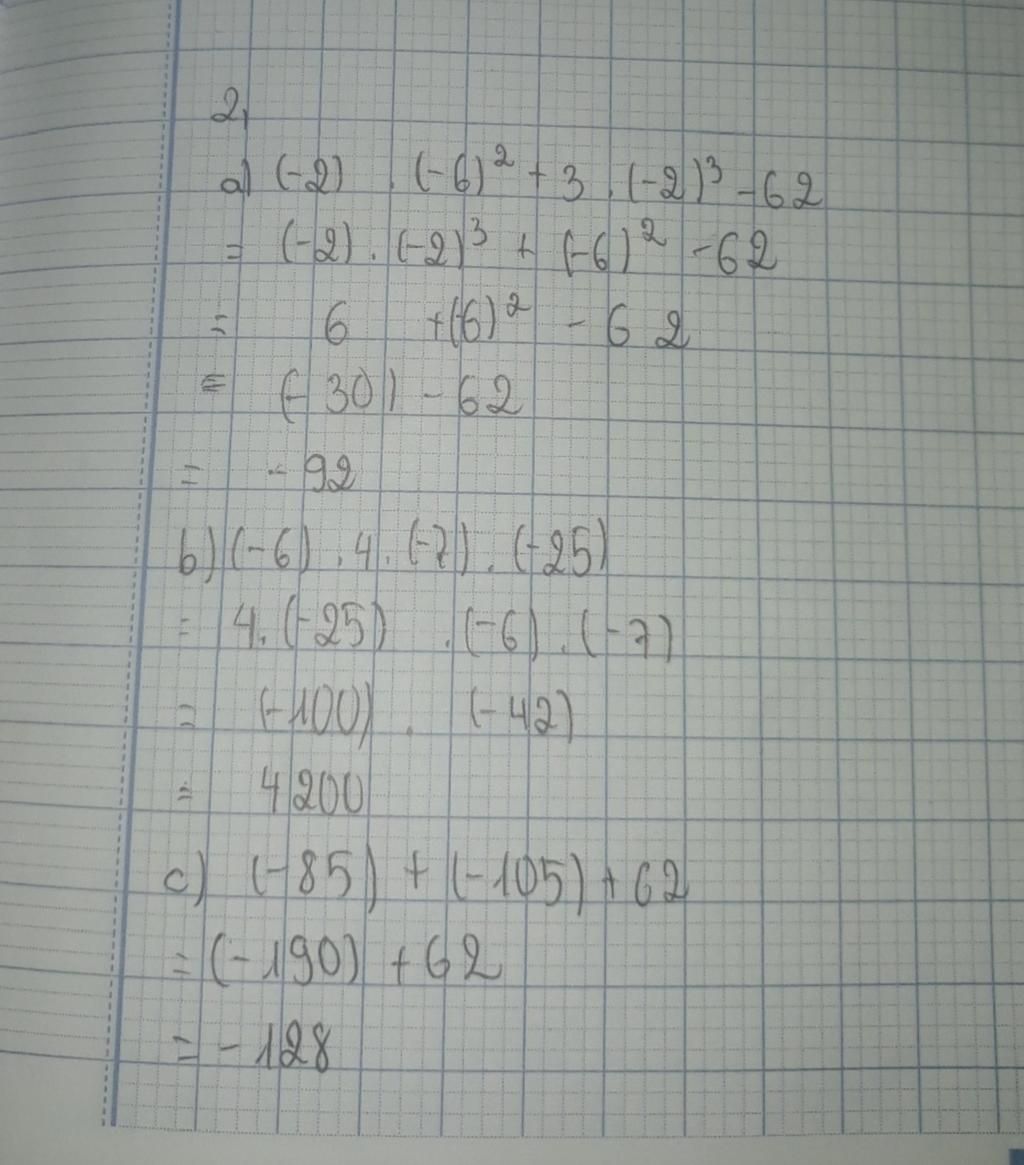 2,
a) (-2) . (-6)² + 3 . (-2)³ - 62
= (-2) . (-2)³ + (-6)² - 62
= 6 +(-6)² - 62
= (-30) - 62
= - 92
b) (-6) . 4 . (-7) . (-25)
= 4 . (-25) . (-6) . (-7)
= (-100) . (-42)
= 4200
c) (-85) + (-105) + 62
= (-190) + 62
= - 128